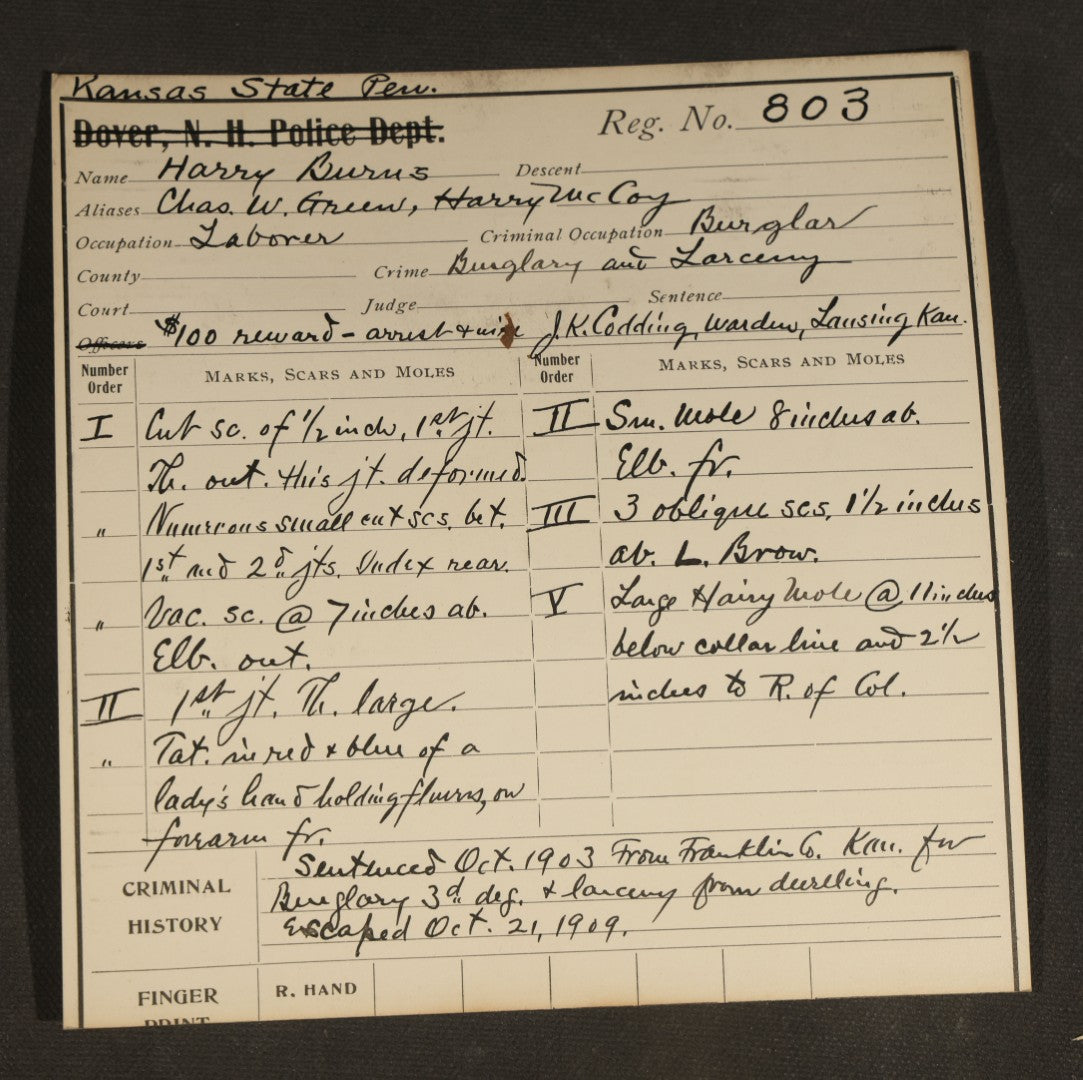 Kansas State Pen.
Dover, N. H. Police Dept.
Reg. No. 803
Name Harry Burns Descent
Aliases Chas. W. Green, Harry McCoy
Occupation Laborer Criminal Occupation Burglar
County Crime Burglary and Larceny
Court Judge Sentence
Officers $100 reward - arrest & wire J.K. Codding, Warden, Lansing Kan.
Number Order MARKS, SCARS AND MOLES
I Cut sc. of 1/2 inch, 1st jt.
Th. out. this jt. deformed.
" Numerous small cut scs. bet.
1st and 2d jts. Index rear.
" Vac. sc. @ 7 inches ab.
Elb. out.
II 1st jt. Th. large.
" Tat. in red & blue of a
lady's hand holding flowers, on
forearm fr.
Number Order MARKS, SCARS AND MOLES
II Sm. Mole 8 inches ab.
Elb. fr.
III 3 oblique scs, 1 1/2 inches
ab. L. Brow.
V Large Hairy Mole @ 11 inches
below collar line and 2 1/2
inches to R. of Col.
CRIMINAL HISTORY
Sentenced Oct. 1903 From Franklin Co. Kan. for
Burglary 3d deg. & larceny from dwelling.
Escaped Oct. 21, 1909.
FINGER PRINT
R. HAND